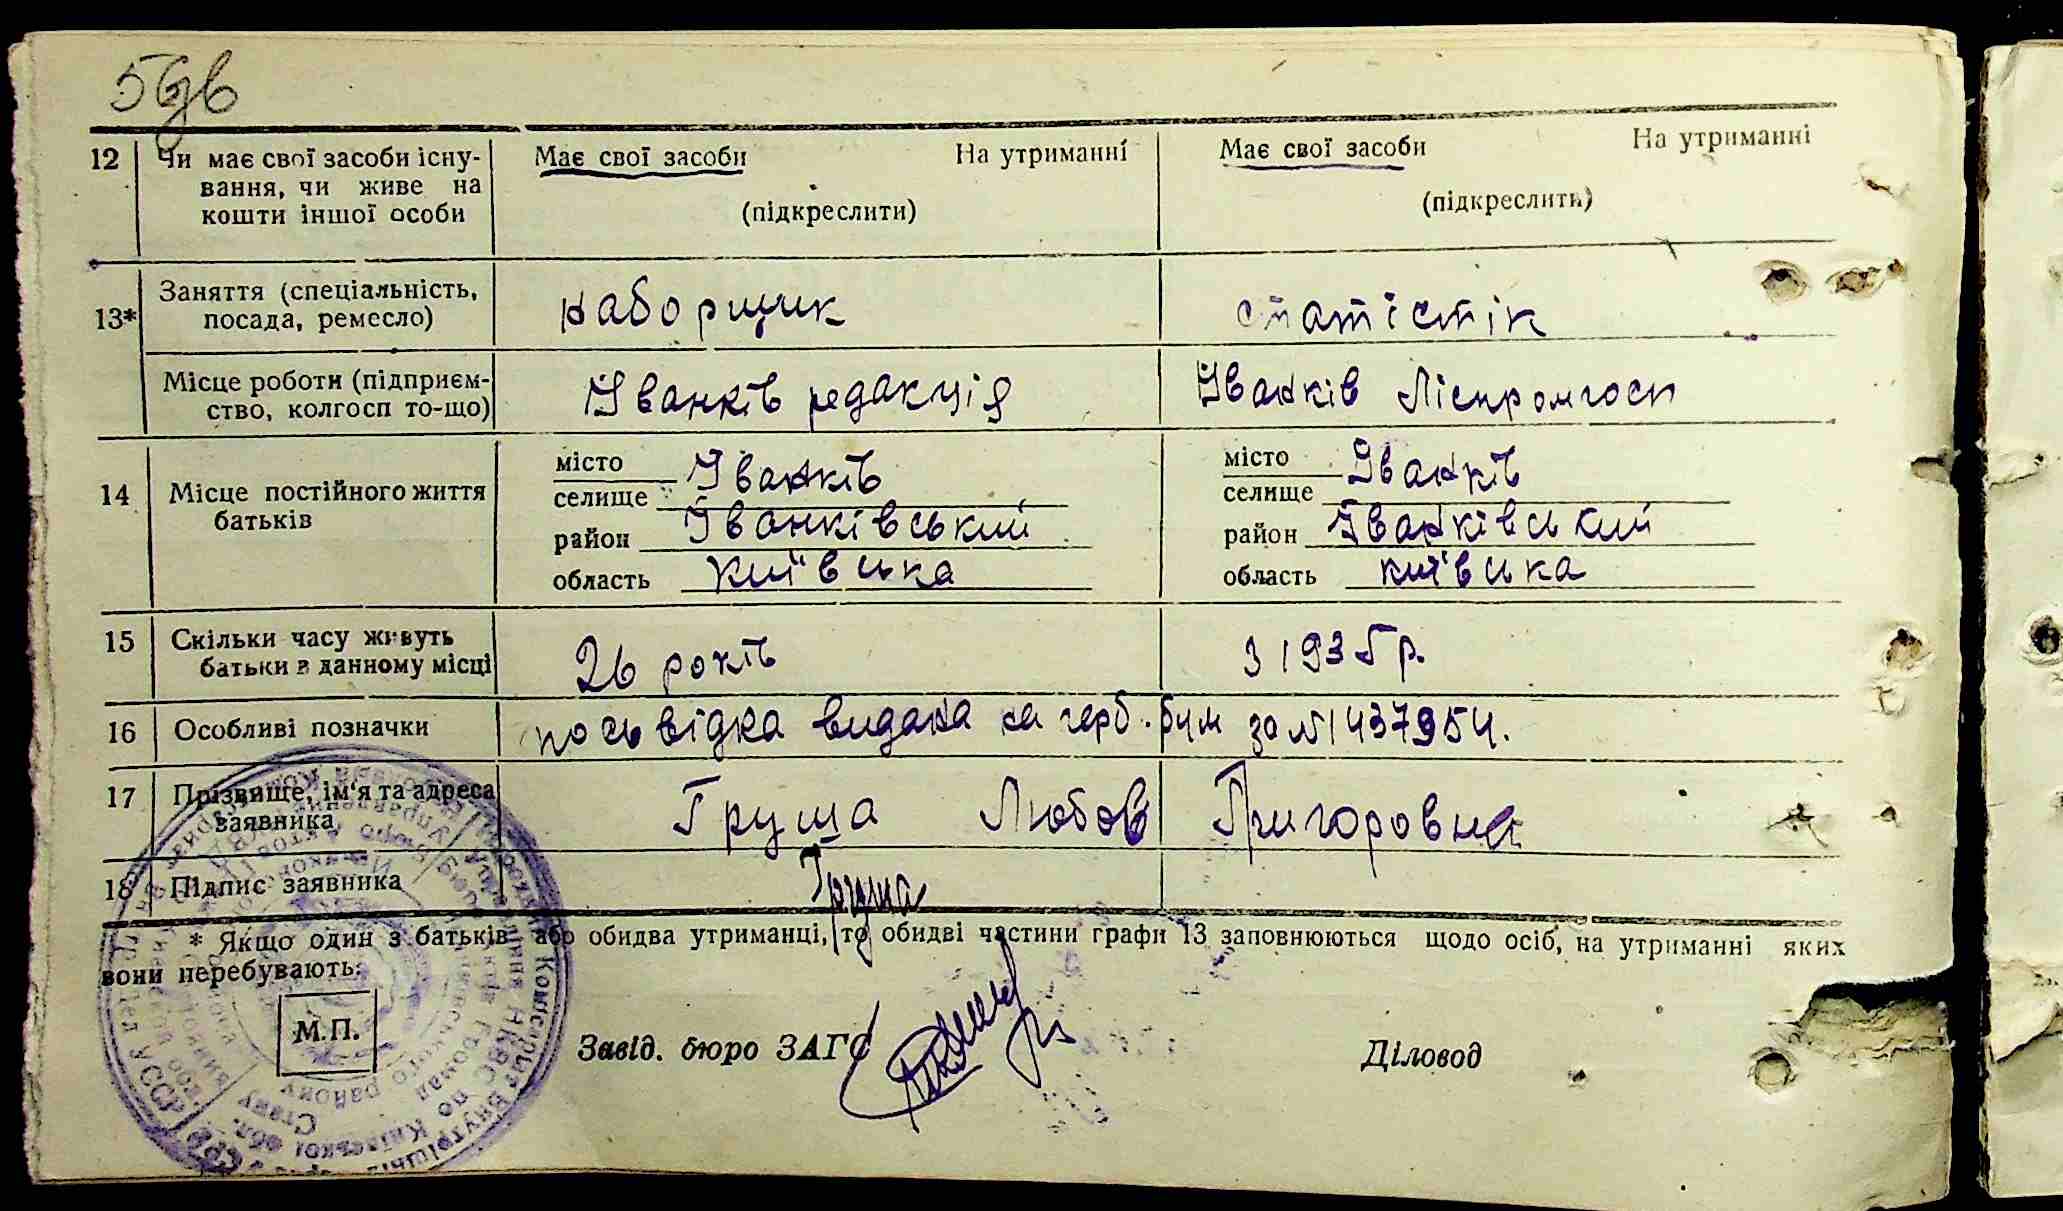 12 Чи має свої засоби існу- Має свої засоби На утриманні Має свої засоби На утриманні
вання, чи живе на
кошти іншої особи (підкреслити) (підкреслить)
13* Заняття (спеціальність, посада, ремесло) наборщик статістік
Місце роботи (підприєм- Іванків редакція Іванків Ліспромгосп
ство, колгосп то-що)
14 Місце постійного життя батьків
місто Іванків місто Іванків
селище селище
район Іванківський район Іванківський
область київська область київська
15 Скільки часу живуть 26 років з 1935 р.
батьки в данному місці
16 Особливі позначки посьвідка видана на герб. бум за № 1437954.
17 Прізвище, ім'я та адреса Груша Любов Григоровна
заявника
18 Підпис заявника Груша
* Якщо один з батьків або обидва утриманці, то обидві частини графи 13 заповнюються щодо осіб, на утриманні яких
вони перебувають.
М.П.
Завід. бюро ЗАГС Діловод